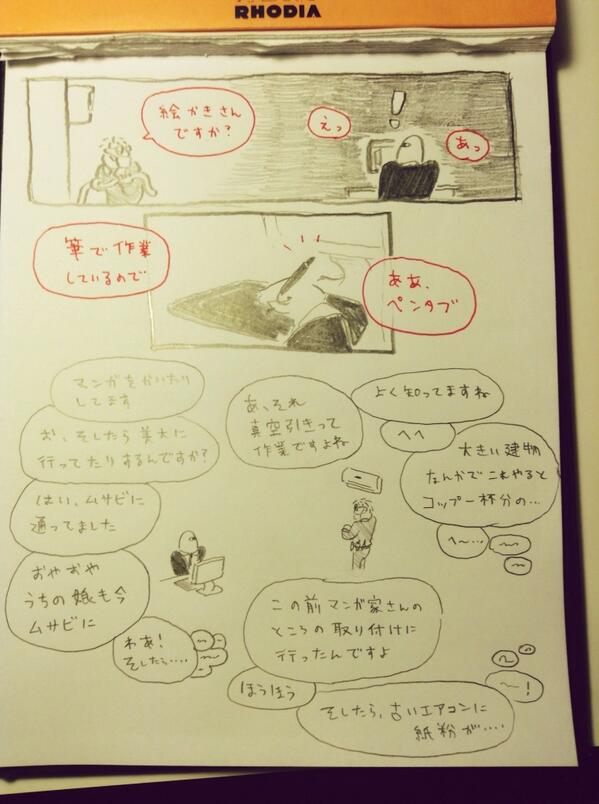 RHODIA
絵かきさん
ですか?
えっ
!
あっ
筆で作業
しているので
ああ、
ペンタブ
マンガをかいたり
してます
お、そしたら美大に
行ってたりするんですか?
はい、ムサビに
通ってました
おやおや
うちの娘も今
ムサビに
わあ!
そしたら‥‥
よく知ってますね
あ、それ
真空引きって
作業ですよね
へへ
大きい建物
なんかでこれやると
コップ一杯分の…
へ〜…
この前マンガ家さんの
ところの取り付けに
行ったんですよ
ほうほう
そしたら、古いエアコンに
紙粉が‥‥
〜!